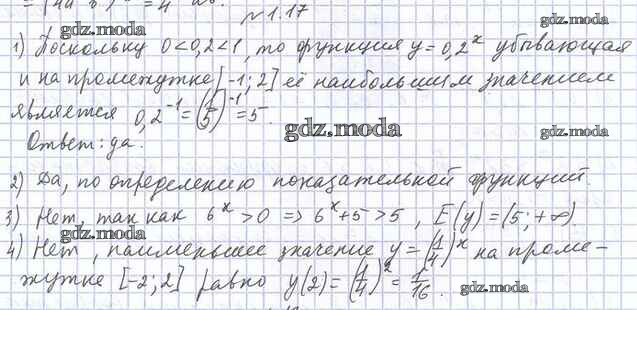 = 4
gdz.moda
N 1.17
1) Поскольку 0<0,2<1, то функция y=0,2^x убывающая
и на промежутке [-1; 2] её наибольшим значением
является 0,2^-1 = (1/5)^-1 = 5.
gdz.moda
gdz.moda
gdz.moda
Ответ: да.
2) Да, по определению показательной функций.
3) Нет, так как 6^x > 0 => 6^x+5 > 5, E(y) = (5; +∞).
gdz.moda
4) Нет, наименьшее значение y = (1/4)^x на проме-
жутке [-2; 2] равно y(2) = (1/4)^2 = 1/16.
gdz.moda